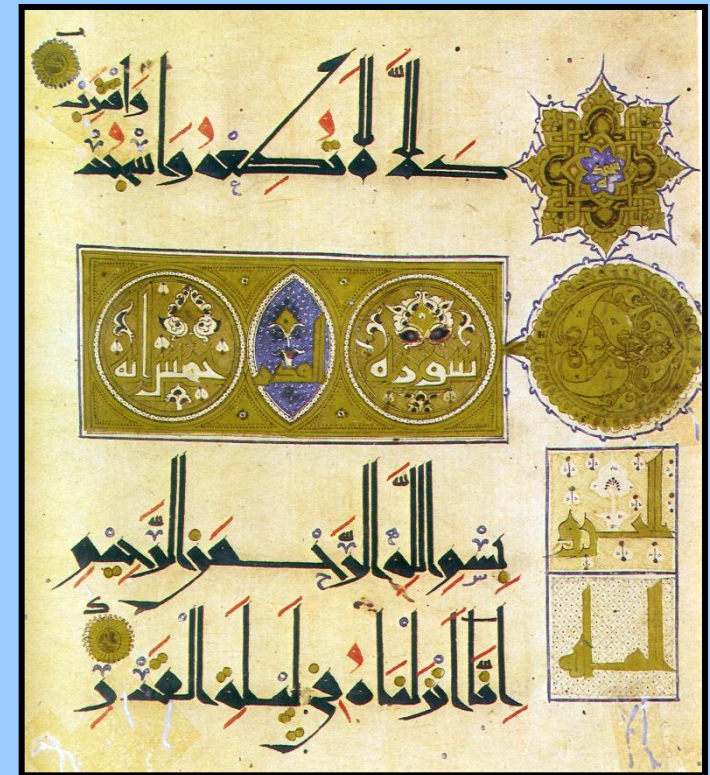 كلا لا تطعه واسجد
واقترب
سورة القدر خمس ايه
بسم الله الرحمن الرحيم
انا انزلناه في ليلة القدر